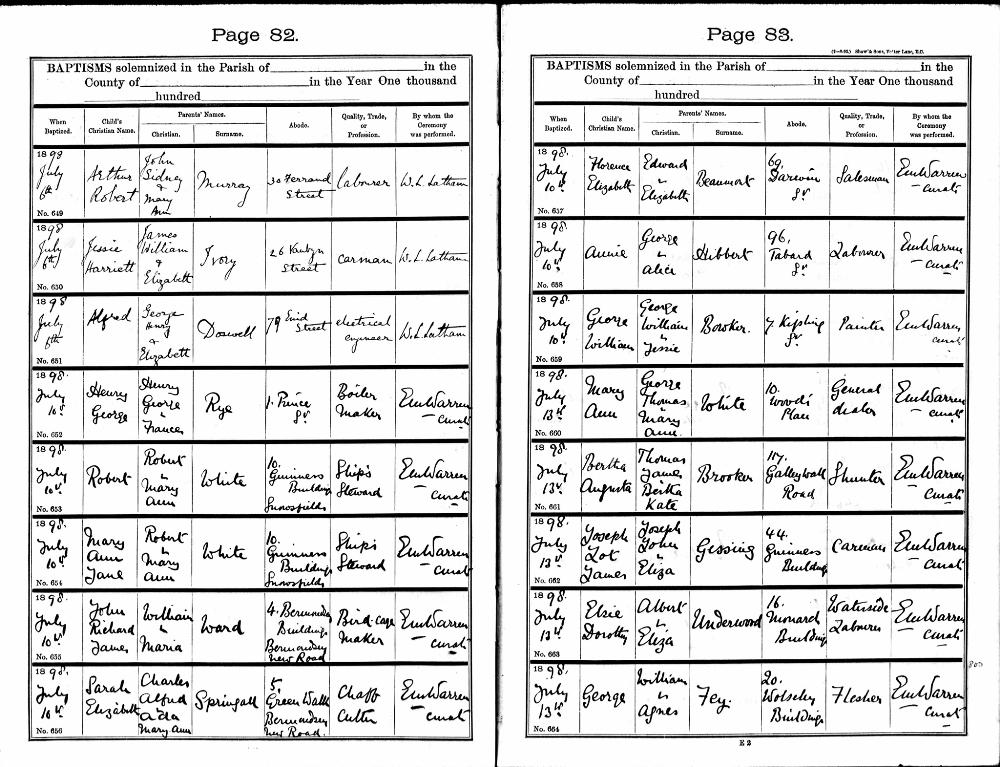 Page 82.
BAPTISMS solemnized in the Parish of in the
County of in the Year One thousand
hundred
When Baptized. Child's Christian Name. Parents' Names. Christian. Surname. Abode. Quality, Trade, or Profession. By whom the Ceremony was performed.
1898
July
6th
No. 649
Arthur
Robert
John
Sidney
&
Mary
Ann
Murray
Street
labourer
W. L. Latham
1898
July
6th
No. 650
Jessie
Harriett
James
William
&
Elizabeth
Ivory
26
Street
carman
W. L. Latham
1898
July
6th
No. 651
Alfred
George
Henry
&
Elizabeth
Doswell
79 Enid
Street
electrical
engineer
W. L. Latham
1898.
July
10th
No. 652
Henry
George
Henry
George
"
Frances
Rye
1. Prince
St.
Boiler
Maker
Warren
curate
1898.
July
10th
No. 653
Robert
Robert
"
Mary
Ann
White
10.
Guinness
Buildings
Snowsfields
Ship's
Steward
Warren
curate
1898.
July
10th
No. 654
Mary
Ann
Jane
Robert
"
Mary
Ann
White
10.
Guinness
Buildings
Snowsfields
Ship's
Steward
Warren
curate
1898.
July
10th
No. 655
John
Richard
James
William
"
Maria
Ward
4. Bermondsey
Buildings
Bermondsey
New Road
Bird-cage
Maker
Warren
curate
1898.
July
10th
No. 656
Sarah
Elizabeth
Charles
Alfred
Ada
Mary Ann
Springall
5,
Green Walk
Bermondsey
New Road.
Chaff
Cutter
Warren
curate
Page 83.
BAPTISMS solemnized in the Parish of in the
County of in the Year One thousand
hundred
When Baptized. Child's Christian Name. Parents' Names. Christian. Surname. Abode. Quality, Trade, or Profession. By whom the Ceremony was performed.
1898.
July
10th
No. 657
Florence
Elizabeth
Edward
"
Elizabeth
Beaumont
69,
Darwin
St.
Salesman
Warren
curate
1898.
July
10th
No. 658
Annie
George
"
Alice
Hibbert
96,
Tabard
St.
Labourer
Warren
curate
1898.
July
10th
No. 659
George
William
George
William
"
Jessie
Bowker.
7 Kipling
St.
Painter
Warren
curate
1898.
July
13th
No. 660
Mary
Ann
George
Thomas
"
Mary
Ann.
White
10.
Wood's
Place
General
dealer
Warren
curate
1898.
July
13th
No. 661
Bertha
Augusta
Thomas
James
Bertha
Kate
Brooker
117.
Galleywall
Road
Shunter
Warren
curate
1898.
July
13th
No. 662
Joseph
Lot
James
Joseph
John
"
Eliza
Gessing
44.
Guinness
Buildings
Carman
Warren
curate
1898.
July
13th
No. 663
Elsie
Dorothy
Albert
"
Eliza
Underwood
16.
Monarch
Buildings
Waterside
Labourer
Warren
curate
1898.
July
13th
No. 664
George
William
"
Agnes
Fey.
20.
Wolseley
Buildings
Flesher
Warren
curate
E 2